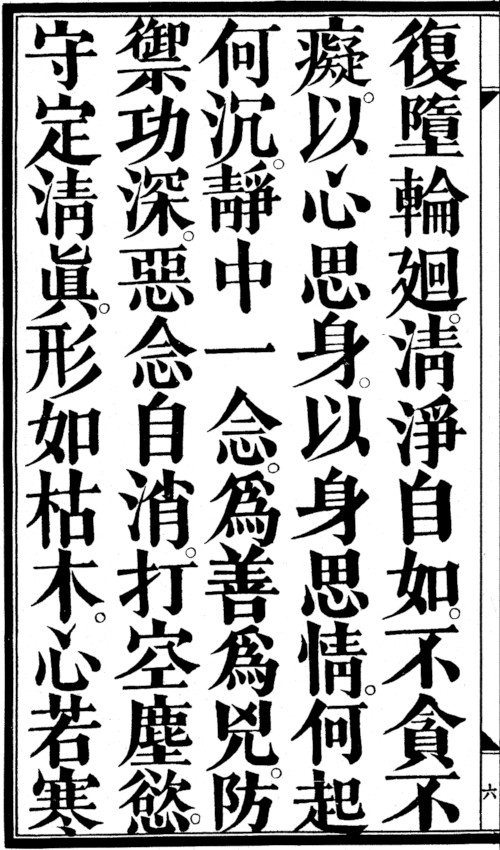 復墮輪廻。清淨自如。不貪不
癡。以心思身。以身思情。何起
何沉。靜中一念。為善為兇。防
禦功深。惡念自消。打空塵慾。
守定淸眞。形如枯木。心若寒
六